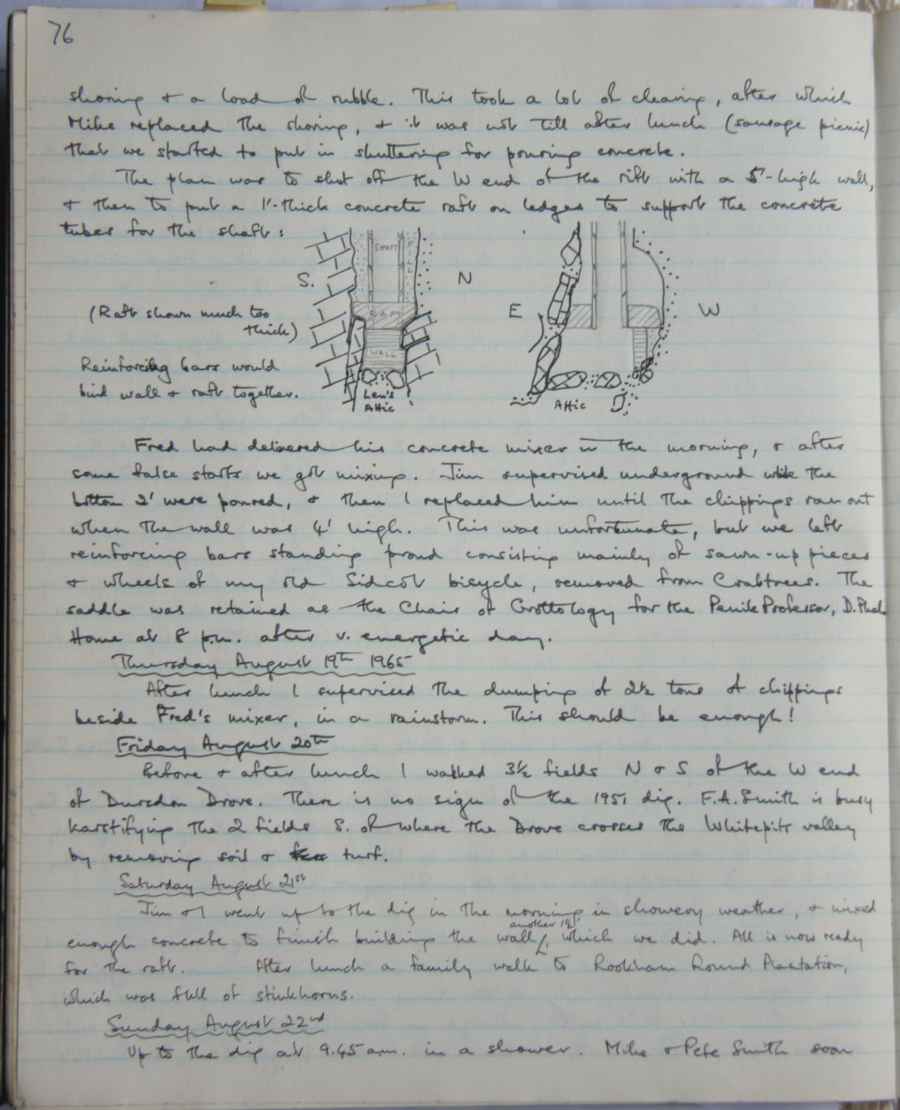 76
shoring + a load of rubble. This took a lot of clearing, after which
Mike replaced the shoring, + it was not till after lunch (sausage picnic)
that we started to put in shuttering for pouring concrete.
The plan was to shut off the W end of the rift with a 5'-high wall,
+ then to put a 1'-thick concrete raft on ledges to support the concrete
tubes for the shaft:
SHAFT
S.
N
E
W
(Raft shown much too
thick)
RAFT
WALL
Reinforcing bars would
bind wall + raft together.
Len's
Attic
Attic
Fred had delivered his concrete mixer in the morning, + after
some false starts we got mixing. Jim supervised underground while the
bottom 2' were poured, + then I replaced him until the chippings ran out
when the wall was 4' high. This was unfortunate, but we left
reinforcing bars standing proud consisting mainly of sawn-up pieces
+ wheels of my old Sidcot bicycle, removed from Crabtrees. The
saddle was retained as the Chair of Grottology for the Penile Professor, D.Phal.
Home at 8 p.m. after v. energetic day.
Thursday August 19th 1965
After lunch I supervised the dumping of 2½ tons of chippings
beside Fred's mixer, in a rainstorm. This should be enough!
Friday August 20th
Before + after lunch I walked 3½ fields N + S of the W end
of Dursdon Drove. There is no sign of the 1951 dig. F.A. Smith is busy
karstifying the 2 fields S. of where the Drove crosses the Whitepits valley
by removing soil + turf.
Saturday August 21st
Jim + I went up to the dig in the morning in showery weather, + mixed
enough concrete to finish building the wall another 1½', which we did. All is now ready
for the raft. After lunch a family walk to Rookham Round Plantation,
which was full of stinkhorns.
Sunday August 22nd
Up to the dig at 9.45 am. in a shower. Mike + Pete Smith soon